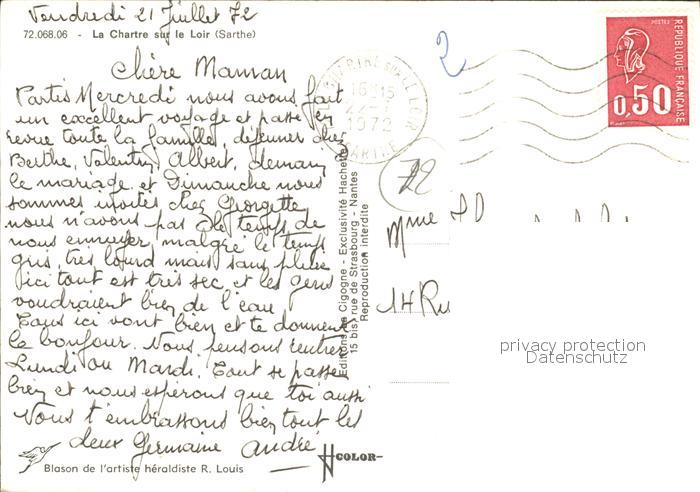 Vendredi 21 Juillet 72
72.068.06 - La Chartre sur le Loir (Sarthe)
Chère Maman
Partis Mercredi nous avons fait
un excellent voyage et passé en
revue toute la famille, déjeuner chez
Berthe, Valentin, Albert, demain
le mariage et Dimanche nous
sommes invités chez Georgette
nous n'avons pas le temps de
nous ennuyer, malgré le temps
gris, très lourd mais sans pluie
ici tout est très sec et les gens
voudraient bien de l'eau
Tous ici vont bien et te donnent
le bonjour. Nous pensons rentrer
Lundi ou Mardi. Tout se passe
bien et nous espérons que toi aussi
Nous t'embrassons bien tout les
deux Germaine André
Blason de l'artiste héraldiste R. Louis
COLOR
Editions de Cigogne - Exclusivité Hachette
15 bis, rue de Strasbourg - Nantes
Reproduction interdite
2
16H15
1972
SARTHE
72
POSTES
REPUBLIQUE FRANÇAISE
0,50
Mme
14 Ru
privacy protection
Datenschutz